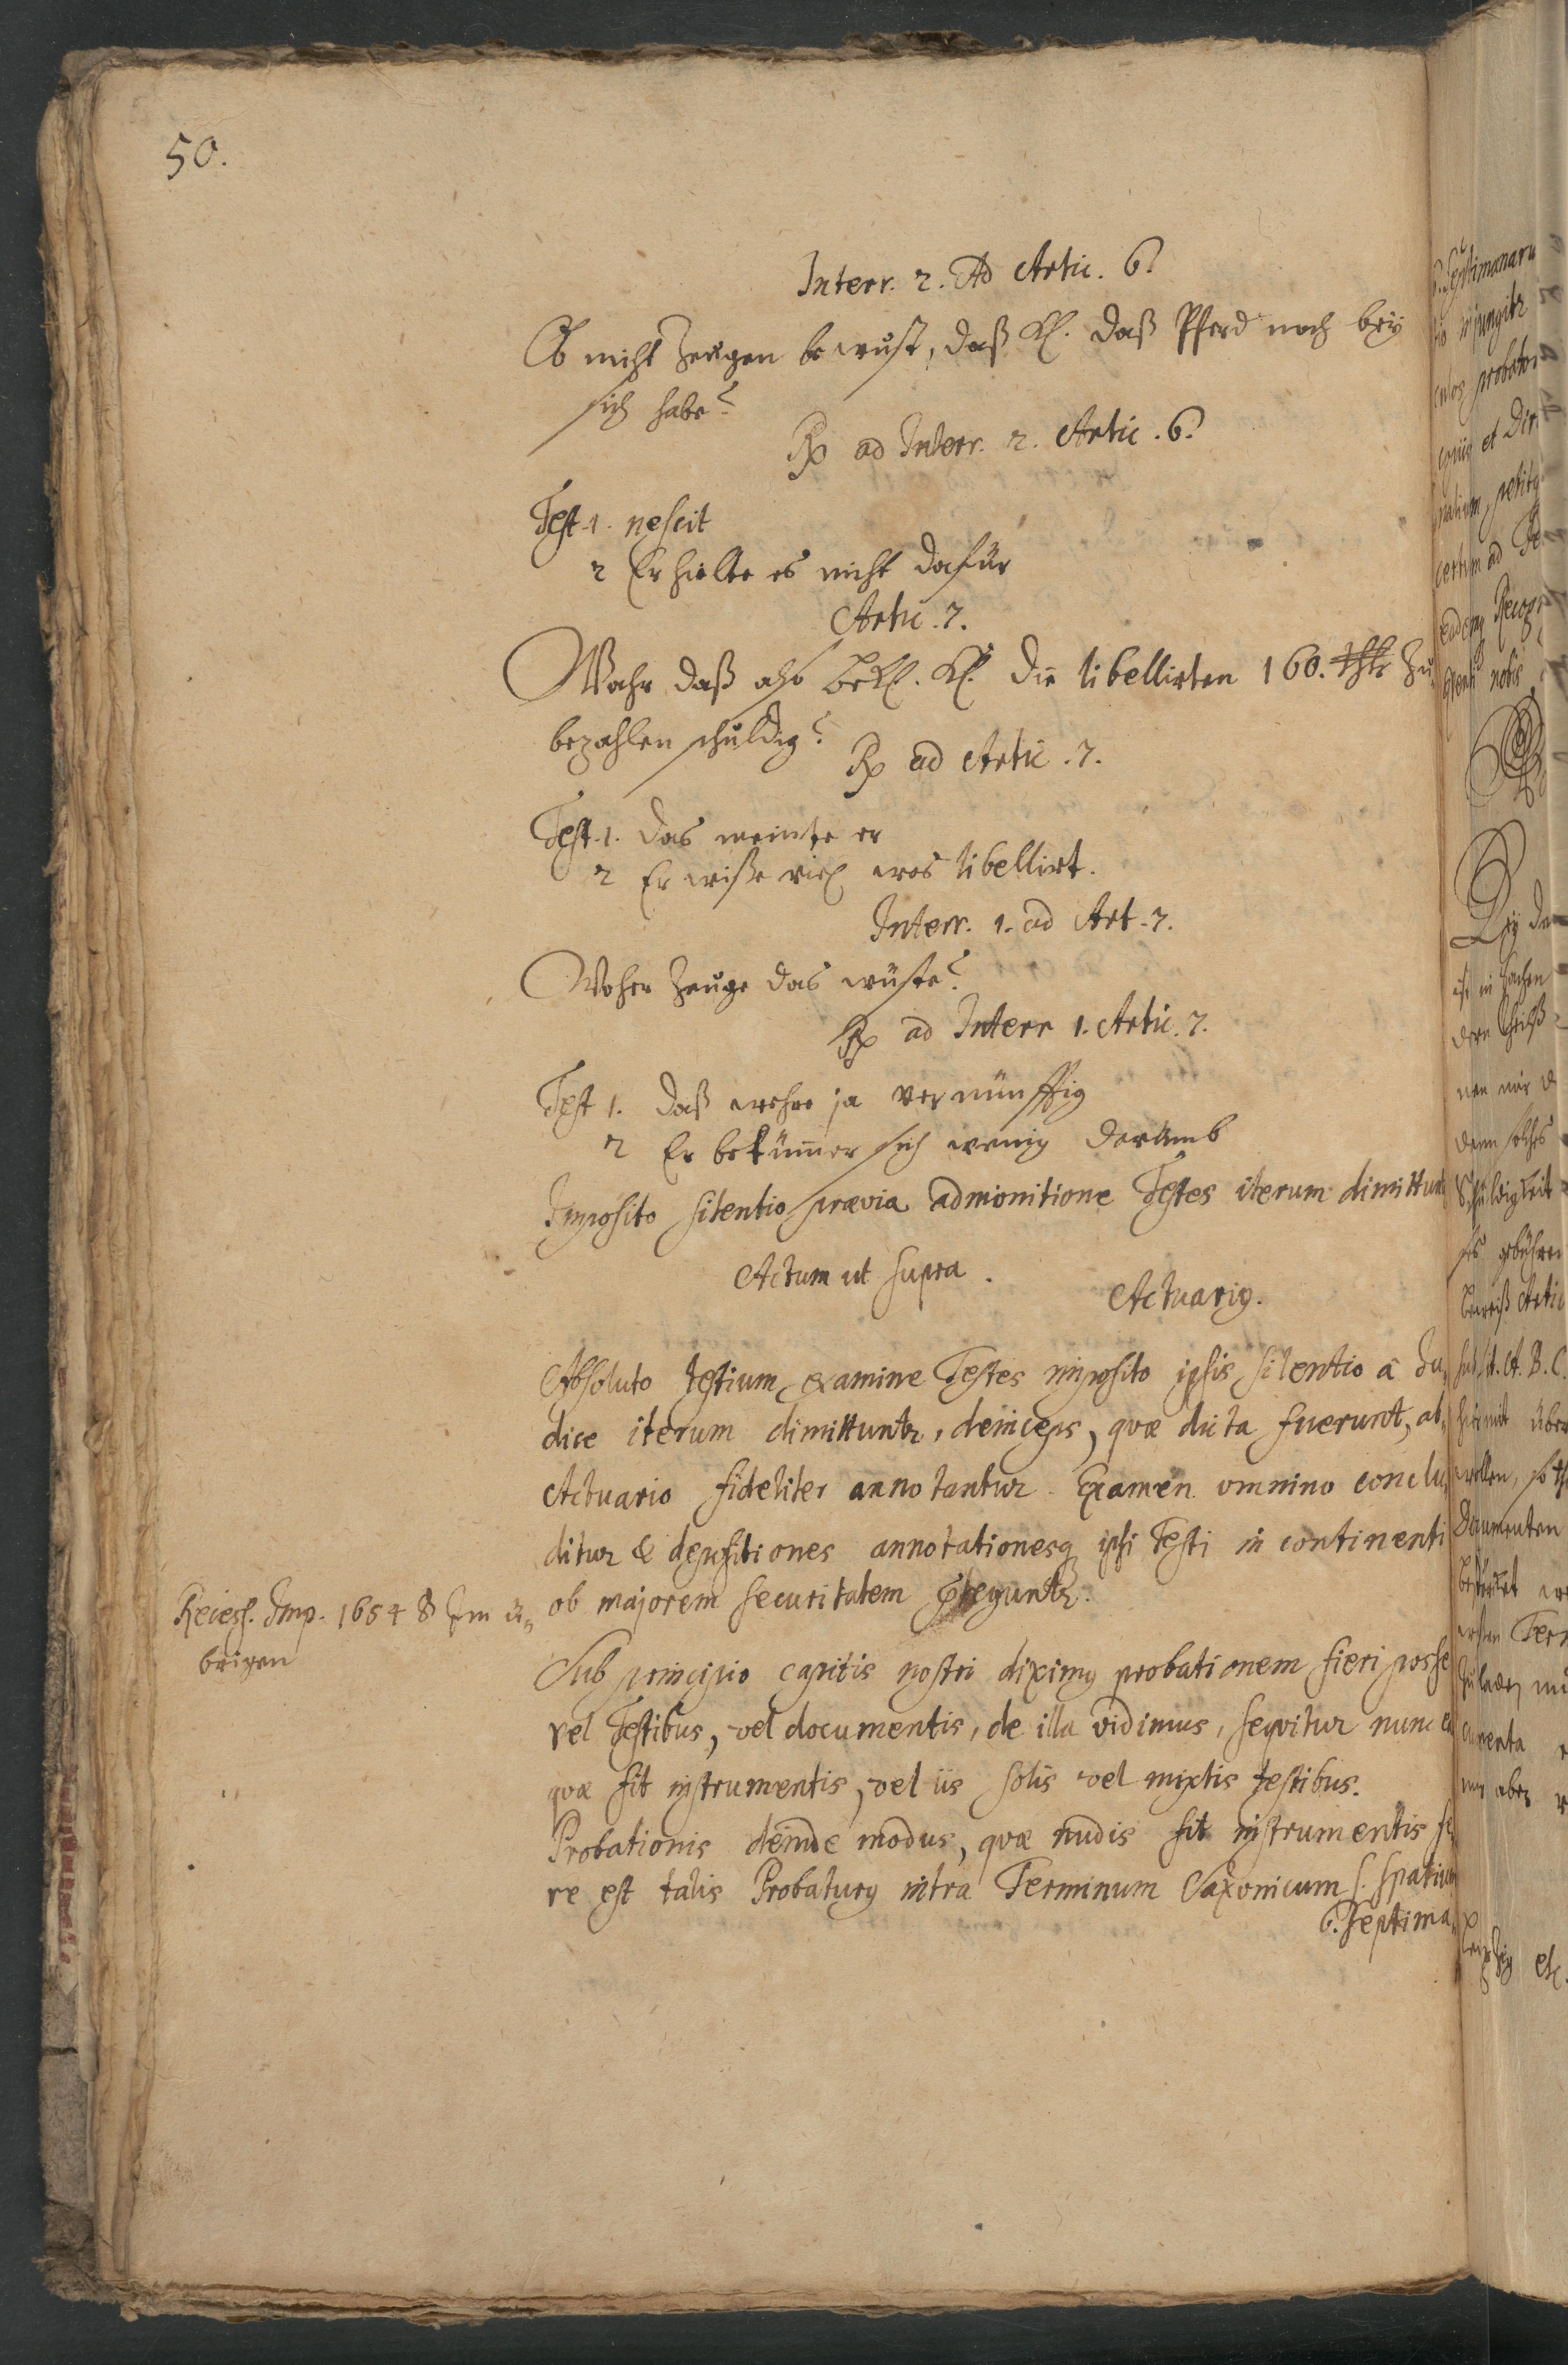 50.
Interr. 2. Ad Artic. 6.
Ob nicht Zeugen bewust, daß Kl. daß Pferd noch bey
sich habe?
Rx ad Interr. 2. Artic. 6.
Test. 1. nescit
2 Er hielte es nicht dafür
Artic. 7.
Wahr daß also Bekl. Kl. die libellirten 160. thlr zu
bezahlen schuldig?
Rx ad Artic. 7.
Test. 1. das meinte er
2 Er wisse viel was libellirt.
Interr. 1. ad Art. 7.
Woher Zeuge das wüste?
Rx ad Interr 1. Artic. 7.
Test 1. daß wehre ja vernünfftig
2 Er bekümer sich wenig darumb
Imposito silentio praevia admonitione Testes iterum dimittunt
Actum ut supra.
Actuarius.
Absoluto testium examine Testes imposito ipsis silentio â Ju-
dice iterum dimittuntr, deinceps, quae dicta fuerunt, ab
Actuario fideliter annotantur. Examen omnino conclu-
ditur & depositiones annotationesq ipsi Testi in continenti
ob majorem securitatem
Recess. Imp. 1654 § Im ü-
brigen
Sub principio capitis nostri diximus probationem fieri posse
vel Testibus, vel documentis, de illa vidimus, sequitur nunc ea
quae fit instrumentis, vel iis solis vel mixtis testibus.
Probationis deinde modus, quae nudis fit instrumentis fe-
re est talis Probaturus intra Terminum Saxonicum s. spatium
6. septima-